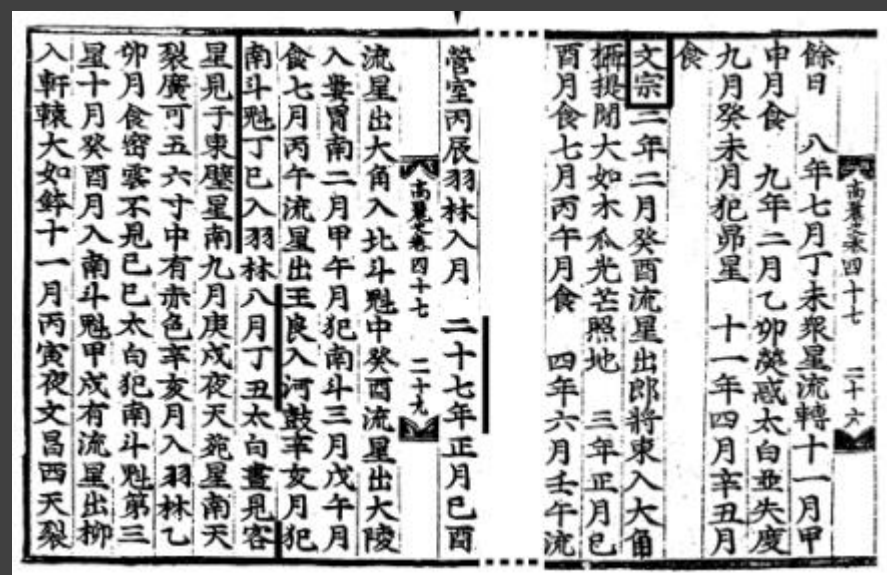 餘日　八年七月丁未衆星流轉十一月甲
申月食　九年二月乙卯熒惑太白並失度
九月癸未月犯昴星　十一年四月辛丑月
食
文宗二年二月癸酉流星出郎將東入大角
攝提間大如木瓜光芒照地　三年正月己
酉月食七月丙午月食　四年六月壬午流
高麗史卷四十七　二十六
營室丙辰羽林入月　二十七年正月己酉
高麗史卷四十七　二十九
流星出大角入北斗魁中癸酉流星出大陵
入婁胃南二月甲午月犯南斗三月戊午月
食七月丙午流星出王良入河鼓辛亥月犯
南斗魁丁巳入羽林八月丁丑太白晝見客
星見于東壁星南九月庚戌夜天苑星南天
裂廣可五六寸中有赤色辛亥月入羽林乙
卯月食密雲不見己巳太白犯南斗魁第三
星十月癸酉月入南斗魁甲戌有流星出柳
入軒轅大如鉢十一月丙寅夜文昌西天裂